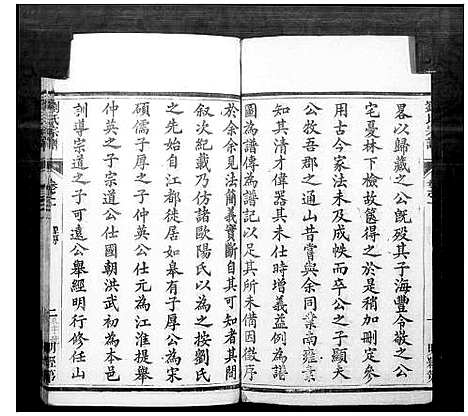 畧以歸藏之公旣歿其子海豐令敬之公
宅憂林下檢故篋得之於是稍加刪定參
用古今家法以及成帙而卒公之子顯夫
公教吾郡之通山昔嘗與余同業南雍素
知其清才偉器其未仕時增義益例為譜
圖為譜傳為譜記以足其所未備因徵序
於余余見法簡義實斷自其可知者而其間
叙次紀載乃仿諸歐陽氏以為之按劉氏
之先始自江都徙居如皋有子厚公為宋
碩儒子厚之子仲英公仕元為江淮提舉
仲英之子宗道公仕國朝洪武初為本邑
訓導宗道之子可遠公舉經明行修任山
劉氏宗譜
卷之
舊序
二
明經第